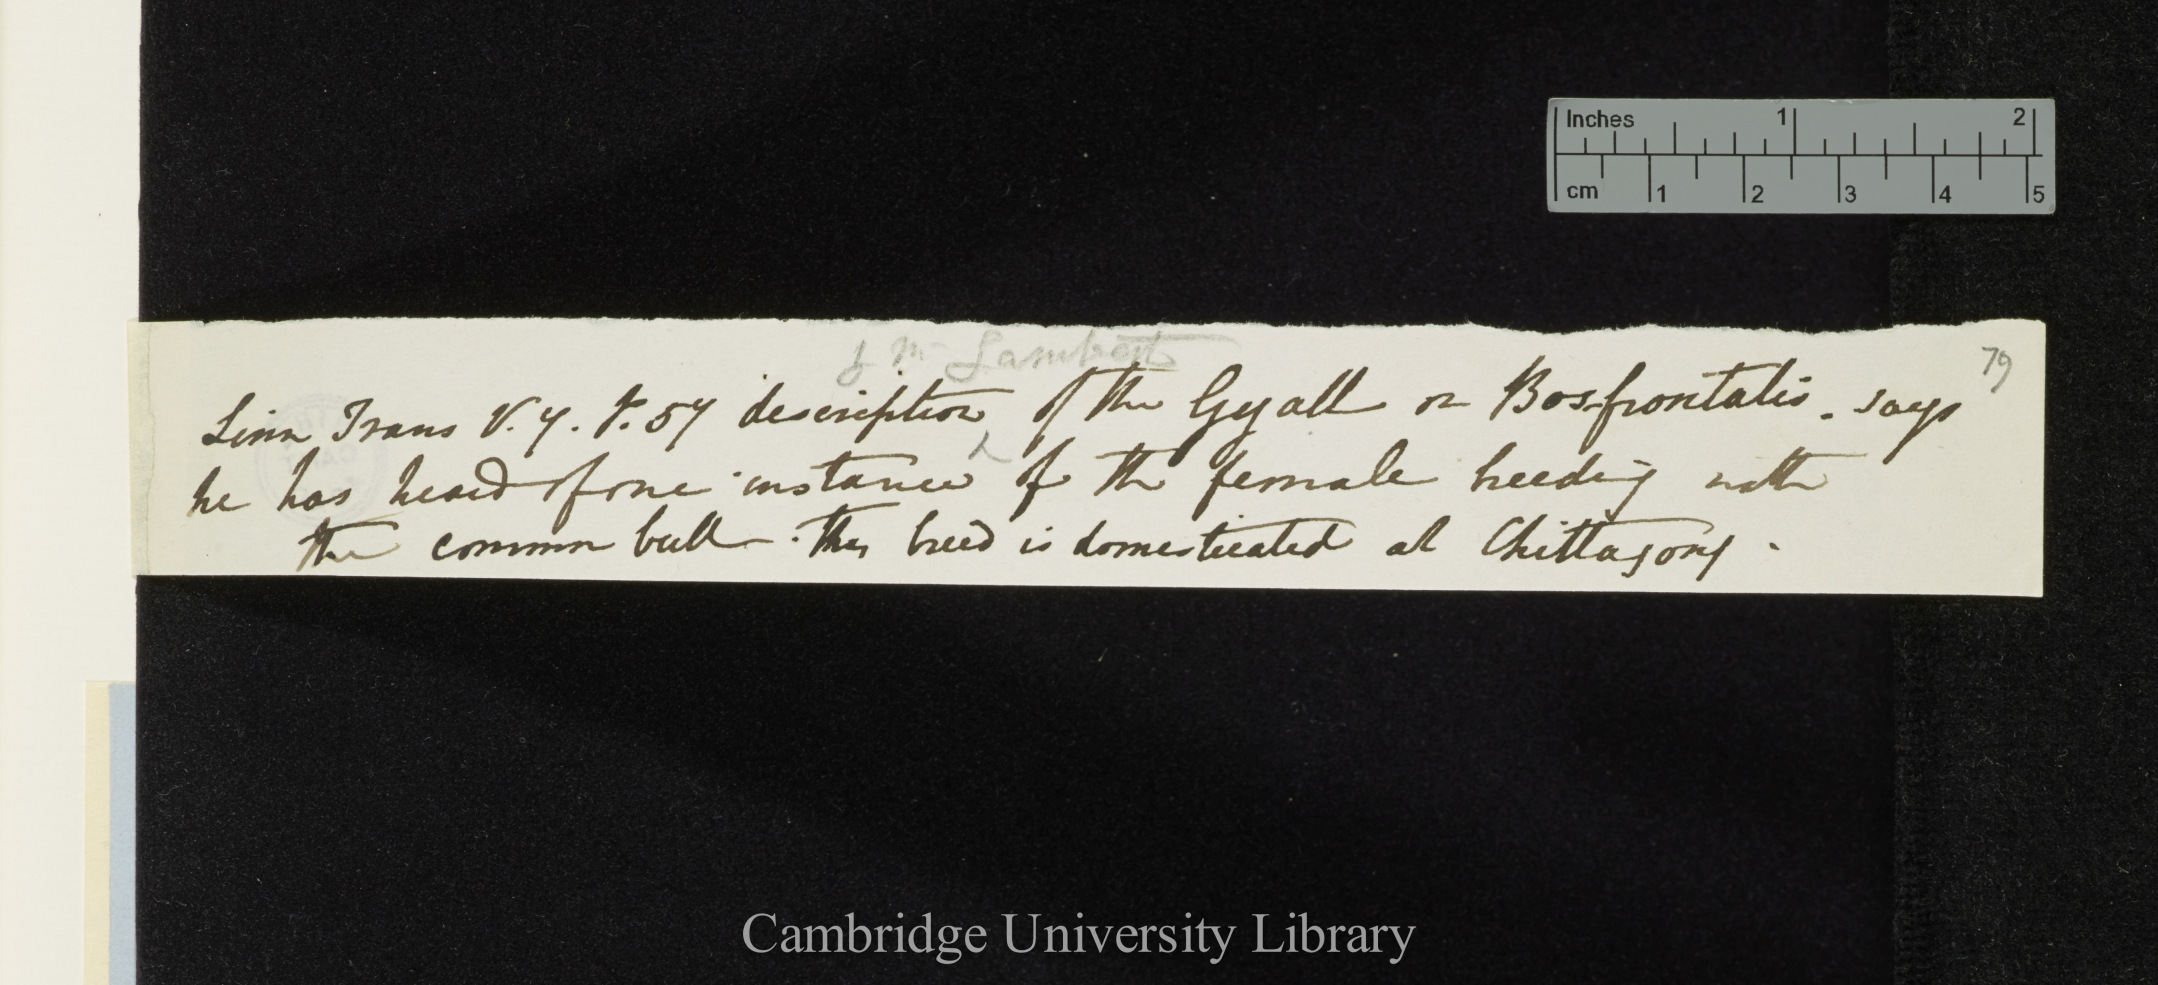 Inches 1 2
cm 1 2 3 4 5
79
by Mr Lambert
Linn Trans V. 7. P. 57 description of the Gyall or Bos-frontalis. says
he has heard of one instance of the female breeding with
the common bull – this breed is domesticated at Chittagong.
Cambridge University Library